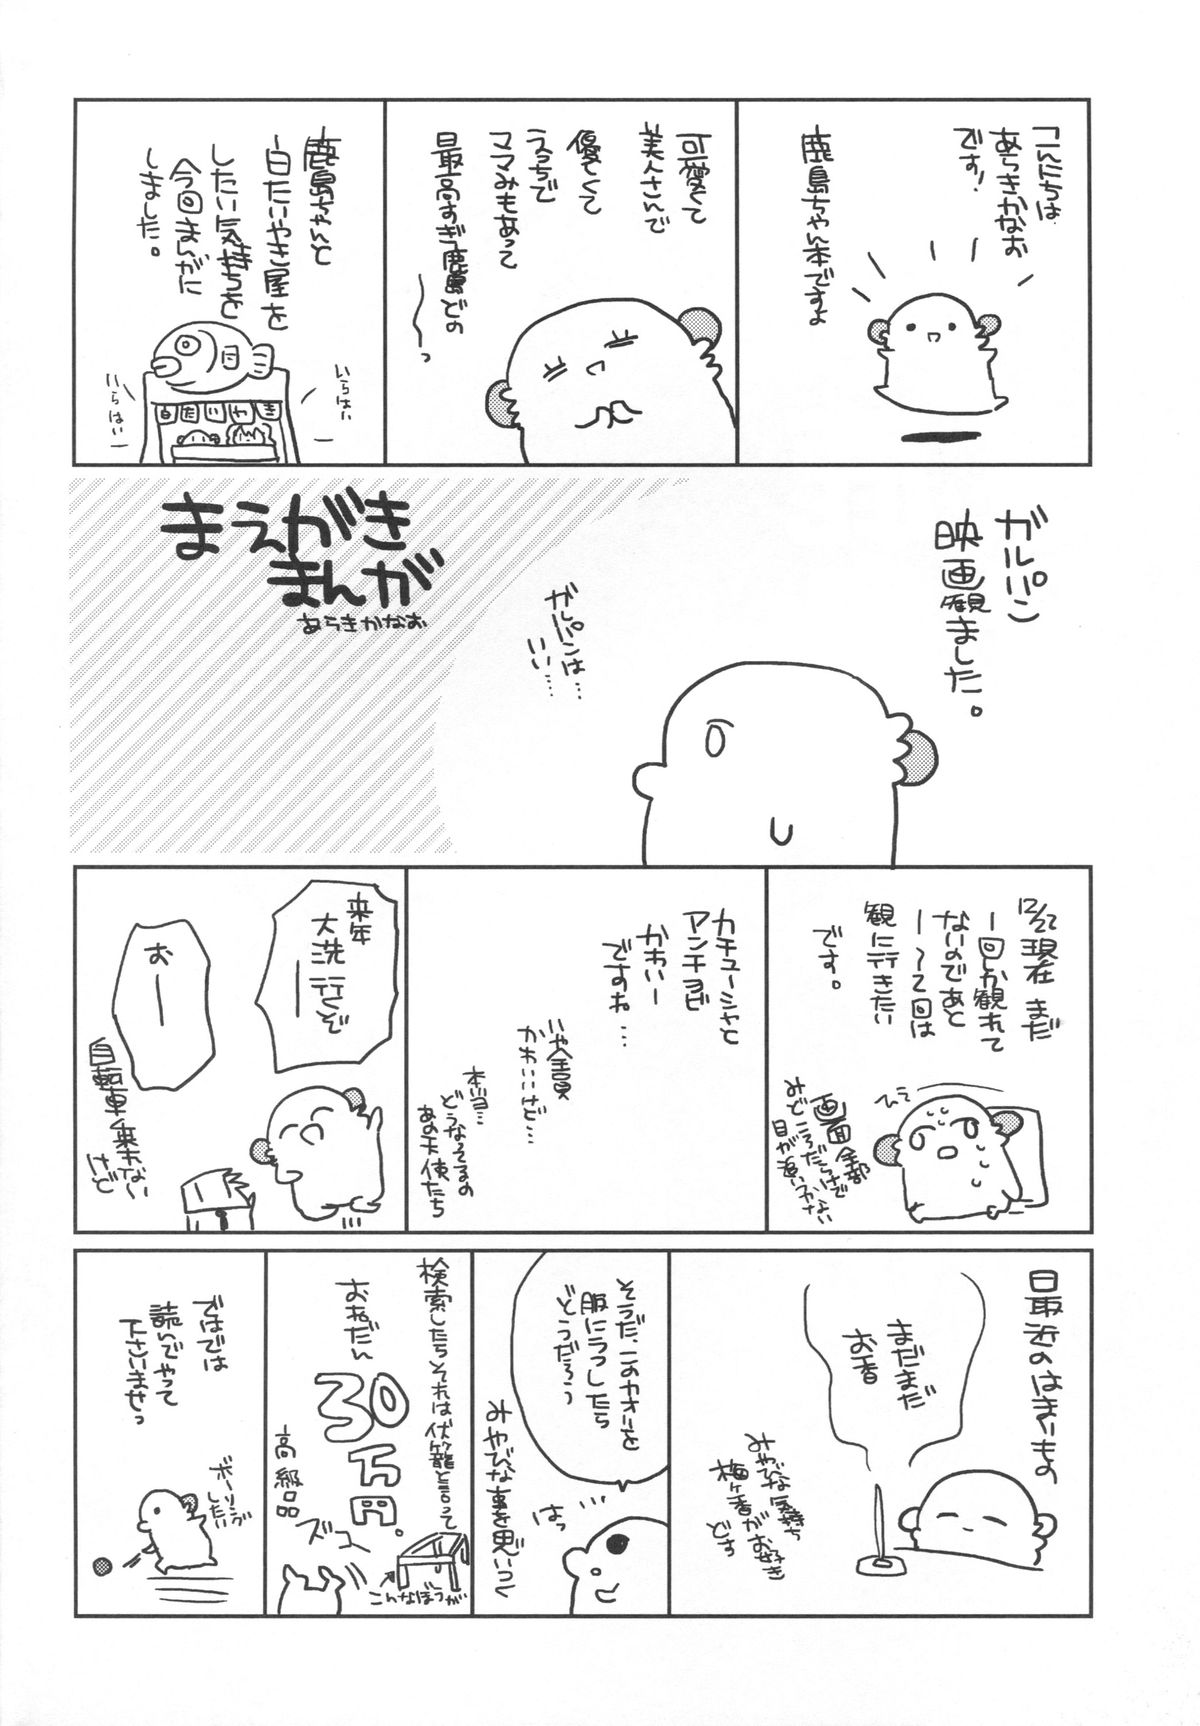 こんにちは
あらきかなお
です！
鹿島ちゃん本ですよ
可愛くて
美人さんで
優しくて
えっちで
ママみもあって
最高すぎ鹿島どの
〜〜っ
鹿島ちゃんと
白たいやき屋を
したい気持ちを
今回まんがに
しました。
いらはい
いらはい
白たいやき
まえがき
まんが
あらきかなお
ガルパン
映画観ました。
ガルパンは…
いい……
12/22現在 まだ
一回しか観れて
ないのであと
1〜2回は
観に行きたい
です。
画面全部
みどころだらけで
目が追いつかない
カチューシャと
アンチョビ
かわいー
ですね…
いや全員
かわいいけど…
本当…
どうなってるの
あの天使たち
来年
大洗行くぞ
ー
おー
自転車しか来れない
けど
最近のはまりもの
まだまだ
お香
みやびな気持ち
梅ヶ香がお好き
です
そうだ、このカオリを
服にうつしたら
どうだろう
はっ
みやびな事を思いつく
検索したらそれは伏籠と言って
おねだん
30万円
高級品
ズコー
こんなぼうが
ではでは
読んでやって
下さいませっ
ボーリング
したい